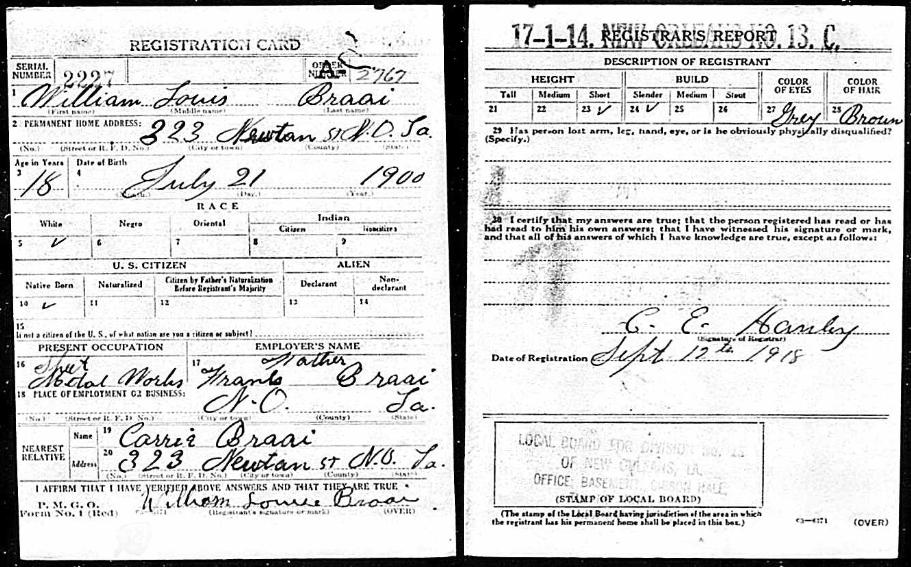 REGISTRATION CARD
SERIAL NUMBER 2227 ORDER NUMBER A 2767
1 William Louis Braai
(First name) (Middle name) (Last name)
2 PERMANENT HOME ADDRESS: 323 Newtan St N.O. La.
(No.) (Street or R. F. D. No.) (City or town) (County) (State)
Age in Years Date of Birth
3 18 4 July 21 1900
(Month.) (Day.) (Year.)
RACE
White Negro Oriental Indian
Citizen Noncitizen
5 ✓ 6 7 8 9
U. S. CITIZEN ALIEN
Native Born Naturalized Citizen by Father's Naturalization Before Registrant's Majority Declarant Non-declarant
10 ✓ 11 12 13 14
15
If not a citizen of the U. S., of what nation are you a citizen or subject?
PRESENT OCCUPATION EMPLOYER'S NAME
16 Sheet 17
Metal Works Frank Braai
18 PLACE OF EMPLOYMENT OR BUSINESS: N.O. La.
(No.) (Street or R. F. D. No.) (City or town) (County) (State)
NEAREST RELATIVE
Name 19 Carrie Braai
Address 20 323 Newtan St N.O. La.
(No.) (Street or R. F. D. No.) (City or town) (County) (State)
I AFFIRM THAT I HAVE VERIFIED ABOVE ANSWERS AND THAT THEY ARE TRUE
P. M. G. O.
Form No. 1 (Red) William Louis Braai
(Registrant's signature or mark) (OVER)
17-1-14. NEW ORLEANS NO. 13 C.
REGISTRAR'S REPORT
DESCRIPTION OF REGISTRANT
HEIGHT BUILD COLOR OF EYES COLOR OF HAIR
Tall Medium Short Slender Medium Stout
21 22 23 ✓ 24 ✓ 25 26 27 Grey 28 Brown
29 Has person lost arm, leg, hand, eye, or is he obviously physically disqualified?
(Specify.)
30 I certify that my answers are true; that the person registered has read or has
had read to him his own answers; that I have witnessed his signature or mark,
and that all of his answers of which I have knowledge are true, except as follows:
C. E. Hanley
(Signature of Registrar)
Date of Registration Sept 12th 1918
LOCAL BOARD FOR DIVISION NO. 13
OF NEW ORLEANS, LA.
OFFICE: BASEMENT, GIBSON HALL
(STAMP OF LOCAL BOARD)
(The stamp of the Local Board having jurisdiction of the area in which
the registrant has his permanent home shall be placed in this box.)
03—6171 (OVER)